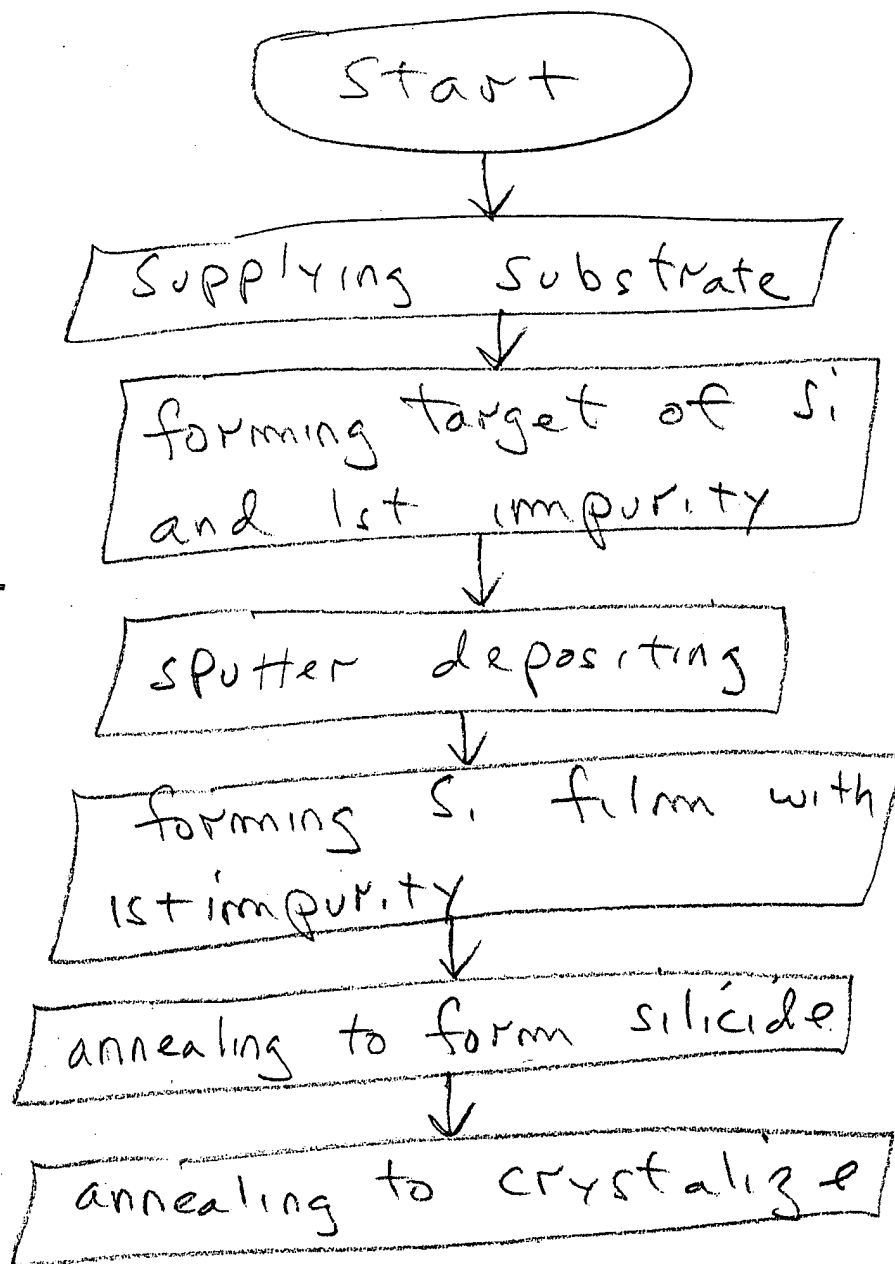 Start
Supplying Substrate
forming target of Si
and 1st impurity
sputter depositing
forming Si film with
1st impurity
annealing to form silicide
annealing to crystalize